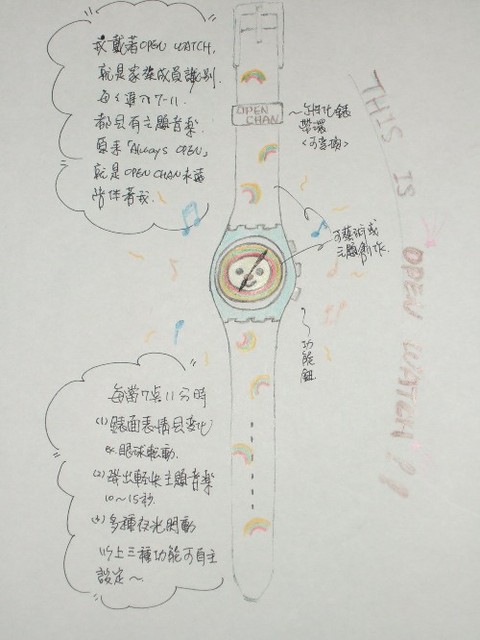 我戴著OPEN WATCH,
就是家族成員識別.
每次進入7-11.
都會有主題音樂.
原來「Always OPEN」
就是OPEN CHAN永遠
陪伴著我.
OPEN
CHAN
~個性化錶
帶環
<可替換>
可藝術或
主題創作.
~功能鈕
每當7點11分時
(1)錶面表情會變化
ex.眼球轉動.
(2)發出輕快主題音樂
10~15秒.
(3)多種夜光閃動
以上三種功能可自主
設定~
THIS IS OPEN WATCH!!